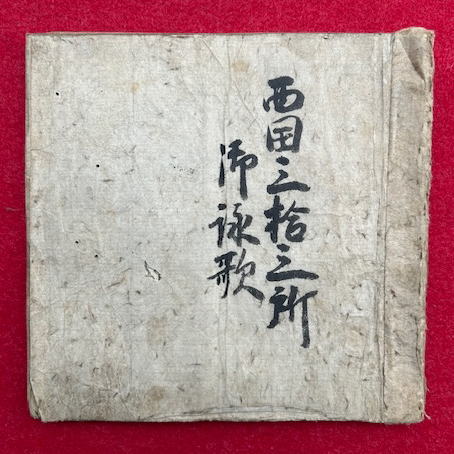 西国三拾三所
御詠歌